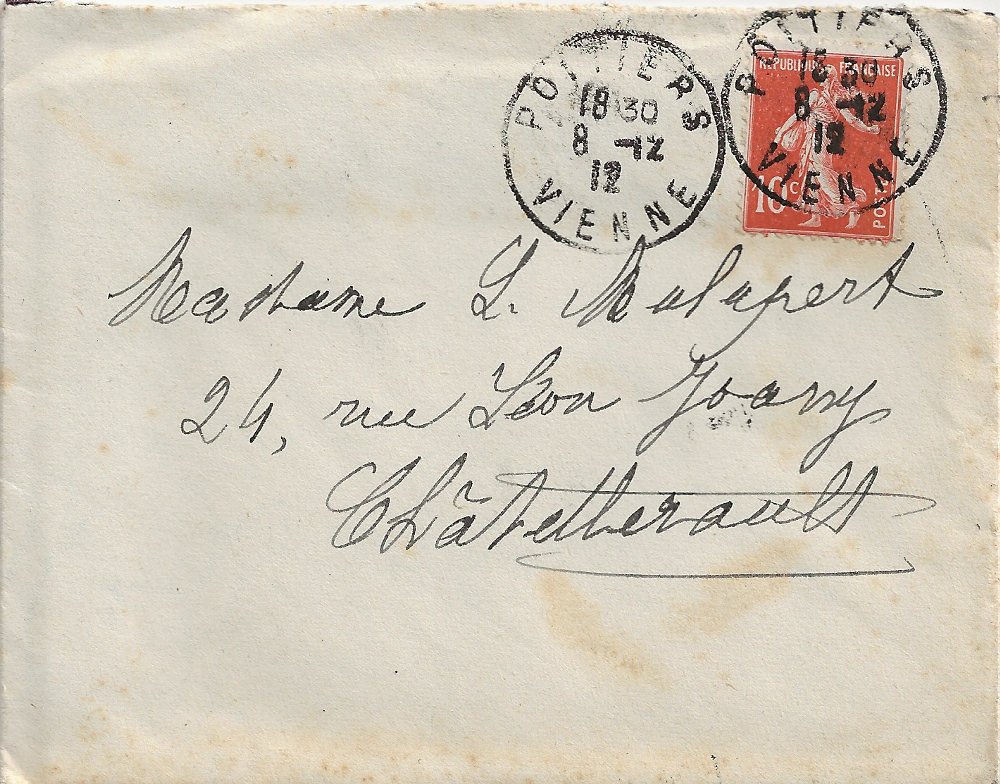 POITIERS
18 30
8 -12
12
VIENNE
POITIERS
18 30
8 -12
12
VIENNE
REPUBLIQUE FRANÇAISE
10 c
POSTES
Madame L. Malapert
24, rue Léon
Châtellerault